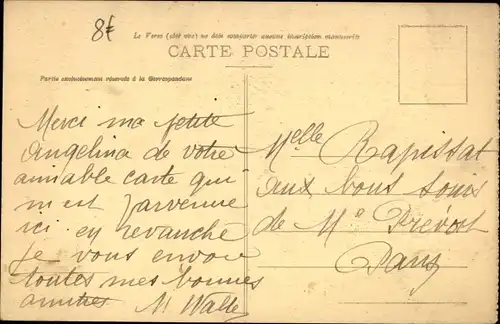 8f
Le Verso (côté vue) ne doit comporter aucune inscription manuscrite
CARTE POSTALE
Partie exclusivement réservée à la Correspondance
Merci ma petite
Angelina de votre
aimable carte qui
m'est parvenue
ici en revanche
je vous envoie
toutes mes bonnes
amitiés M Walle
Melle Rapissat
aux bons soins
de Me Prevost